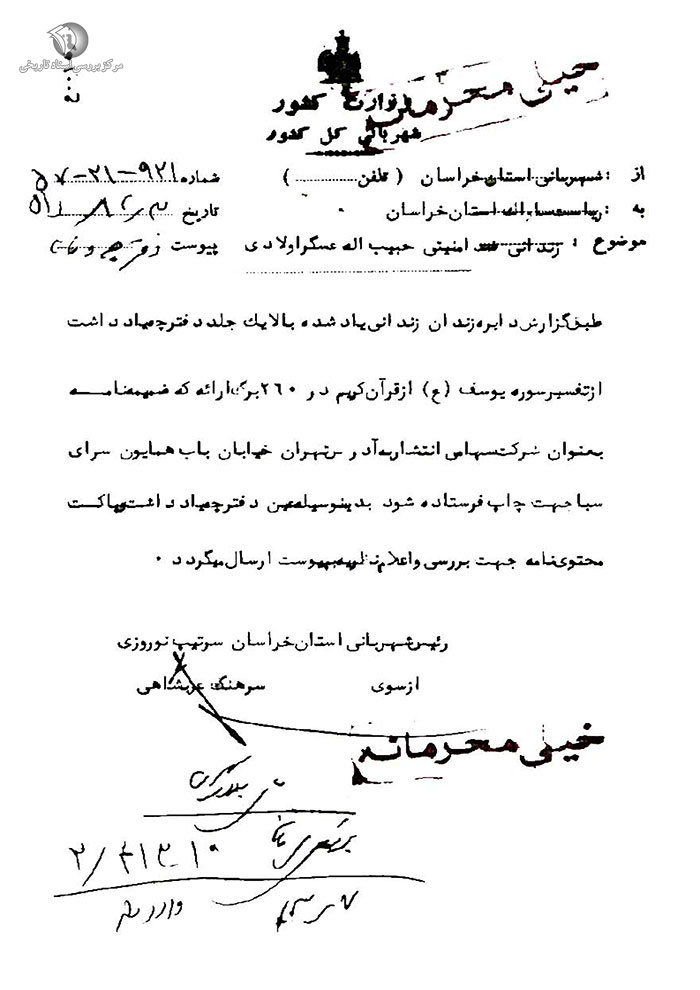 مرکز بررسی اسناد تاریخی
خیلی محرمانه
وزارت کشور
شهربانی کل کشور
از : شهربانی استان خراسان ( تلفن ............ ) شماره ۹۲۱-۲۱-۵۷
به : ریاست ساواک استان خراسان . تاریخ
موضوع : زندانی ضد امنیتی حبیب اله عسگراولادی پیوست
طبق گزارش دایره زندان زندانی یاد شده بالا یک جلد دفترچه یاد داشت
از تفسیر سوره یوسف (ع) از قرآن کریم در ۲۶۰ برگ ارائه که ضمیمه نامه
بعنوان شرکت سهامی انتشار به آدرس تهران خیابان باب همایون سرای
سبا جهت چاپ فرستاده شود بدینوسیله عین دفترچه یاد داشت و پاکت
محتوی نامه جهت بررسی و اعلام نظریه به پیوست ارسال میگردد ۰
رئیس شهربانی استان خراسان سرتیپ نوروزی
از سوی سرهنگ عربشاهی
خیلی محرمانه